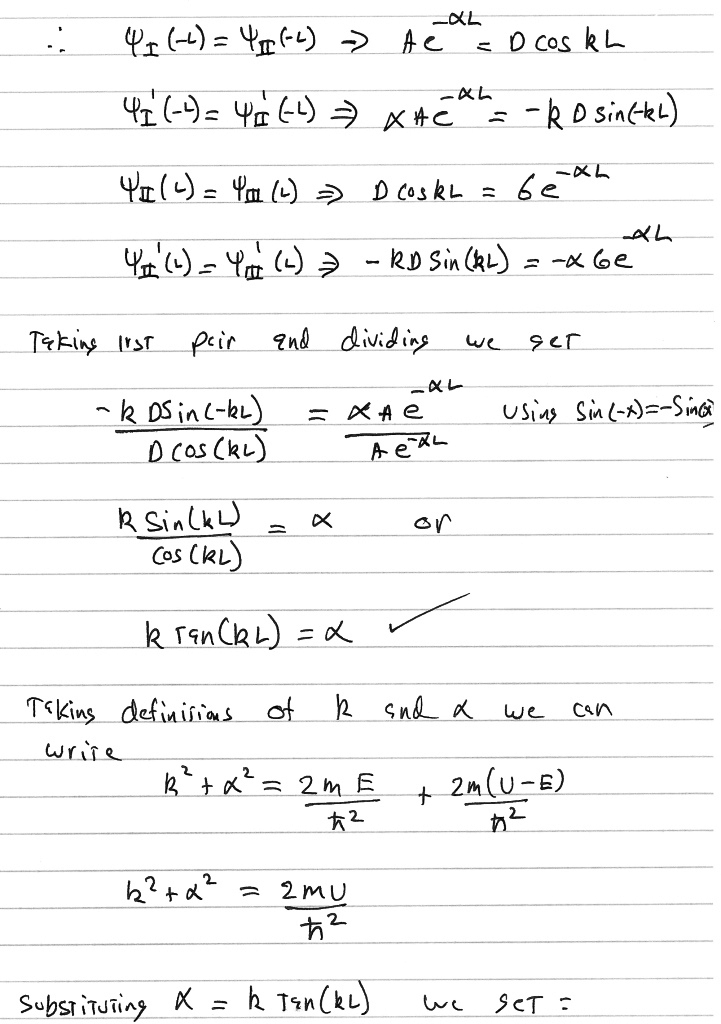 ∴ Ψ_I(-L) = Ψ_II(-L) → Ae^{-αL} = D cos kL
Ψ_I'(-L) = Ψ_II'(-L) ⇒ αAe^{-αL} = -kD sin(-kL)
Ψ_II(L) = Ψ_III(L) ⇒ D cos kL = Ge^{-αL}
Ψ_II'(L) = Ψ_III'(L) ⇒ -kD Sin(kL) = -αGe^{-αL}
Taking irst pair and dividing we get
-k DSin(-kL) / D cos(kL) = αAe^{-αL} / Ae^{-αL} Using Sin(-x)=-Sin(x)
k Sin(kL) / Cos(kL) = α or
k Tan(kL) = α ✓
Taking definisions of k and α we can
write
k² + α² = 2mE/ħ² + 2m(U-E)/ħ²
k² + α² = 2mU/ħ²
Substituting α = k Tan(kL) we get =